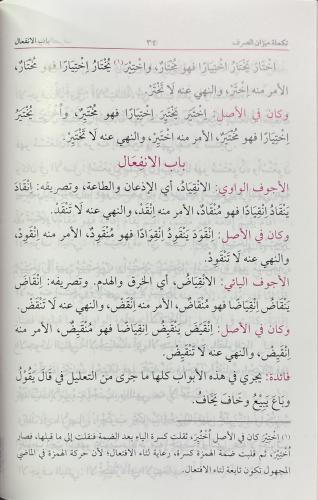 تكملة ميزان الصرف ٣٤٠ باب الانفعال
اِخْتَارَ يَخْتَارُ اِخْتِيَارًا فهو مُخْتَارٌ، واخْتِيْرَ(١) يُخْتَارُ اِخْتِيَارًا فهو مُخْتَارٌ،
الأمر منه اِخْتَرْ، والنهي عنه لَا تَخْتَرْ.
وكان في الأصل: اِخْتَيَرَ يَخْتَيِرُ اِخْتِيَارًا فهو مُخْتَيِرٌ، وأُخْتُيِرَ يُخْتَيَرُ
اِخْتِيَارًا فهو مُخْتَيَرٌ، الأمر منه اِخْتَيِرْ، والنهي عنه لَا تَخْتَيِرْ.
باب الانْفِعَال
الأجوف الواوي: الانْقِيَادُ، أي الإذعان والطاعة، وتصريفه: اِنْقَادَ
يَنْقَادُ اِنْقِيَادًا فهو مُنْقَادٌ، الأمر منه اِنْقَدْ، والنهي عنه لَا تَنْقَدْ.
وكان في الأصل: اِنْقَوَدَ يَنْقَوِدُ اِنْقِوَادًا فهو مُنْقَوِدٌ، الأمر منه اِنْقَوِدْ،
والنهي عنه لَا تَنْقَوِدْ.
الأجوف اليائي: الانْقِيَاضُ، أي الخرق والهدم. وتصريفه: اِنْقَاضَ
يَنْقَاضُ اِنْقِيَاضًا فهو مُنْقَاضٌ، الأمر منه اِنْقَضْ، والنهي عنه لَا تَنْقَضْ.
وكان في الأصل: اِنْقَيَضَ يَنْقَيِضُ اِنْقِيَاضًا فهو مُنْقَيِضٌ، الأمر منه
اِنْقَيِضْ، والنهي عنه لَا تَنْقَيِضْ.
فائدة: يجري في هذه الأبواب كلها ما جرى من التعليل في قَالَ يَقُوْلُ
وبَاعَ يَبِيْعُ وخَافَ يَخَافُ.
(١) اِخْتِيْرَ كان في الأصل اُخْتُيِرَ، ثقلت كسرة الياء بعد الضمة فنقلت إلى ما قبلها، فصار
اُخْتِيْرَ، ثم قلبت ضمة الهمزة كسرة، رعاية لتاء الافتعال؛ لأن حركة الهمزة في الماضي
المجهول تكون تابعة لتاء الافتعال.